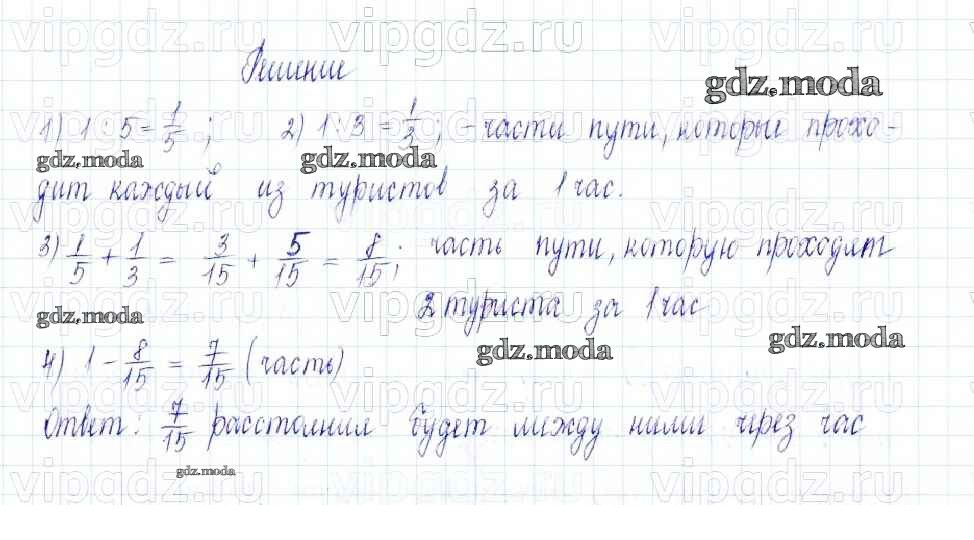 vipgdz.ru vipgdz.ru vipgdz.ru
Решение
gdz.moda
vipgdz.ru vipgdz.ru vipgdz.ru
1) 1 : 5 = 1/5 ; 2) 1 : 3 = 1/3 ; - части пути, которые прохо-
gdz.moda gdz.moda
дит каждый из туристов за 1 час.
vipgdz.ru vipgdz.ru vipgdz.ru
3) 1/5 + 1/3 = 3/15 + 5/15 = 8/15 ; часть пути, которую проходят
2 туриста за 1 час
vipgdz.ru vipgdz.ru vipgdz.ru
gdz.moda
gdz.moda gdz.moda
4) 1 - 8/15 = 7/15 (часть)
vipgdz.ru vipgdz.ru vipgdz.ru
Ответ: 7/15 расстояния будет между ними через час
gdz.moda
vipgdz.ru vipgdz.ru vipgdz.ru